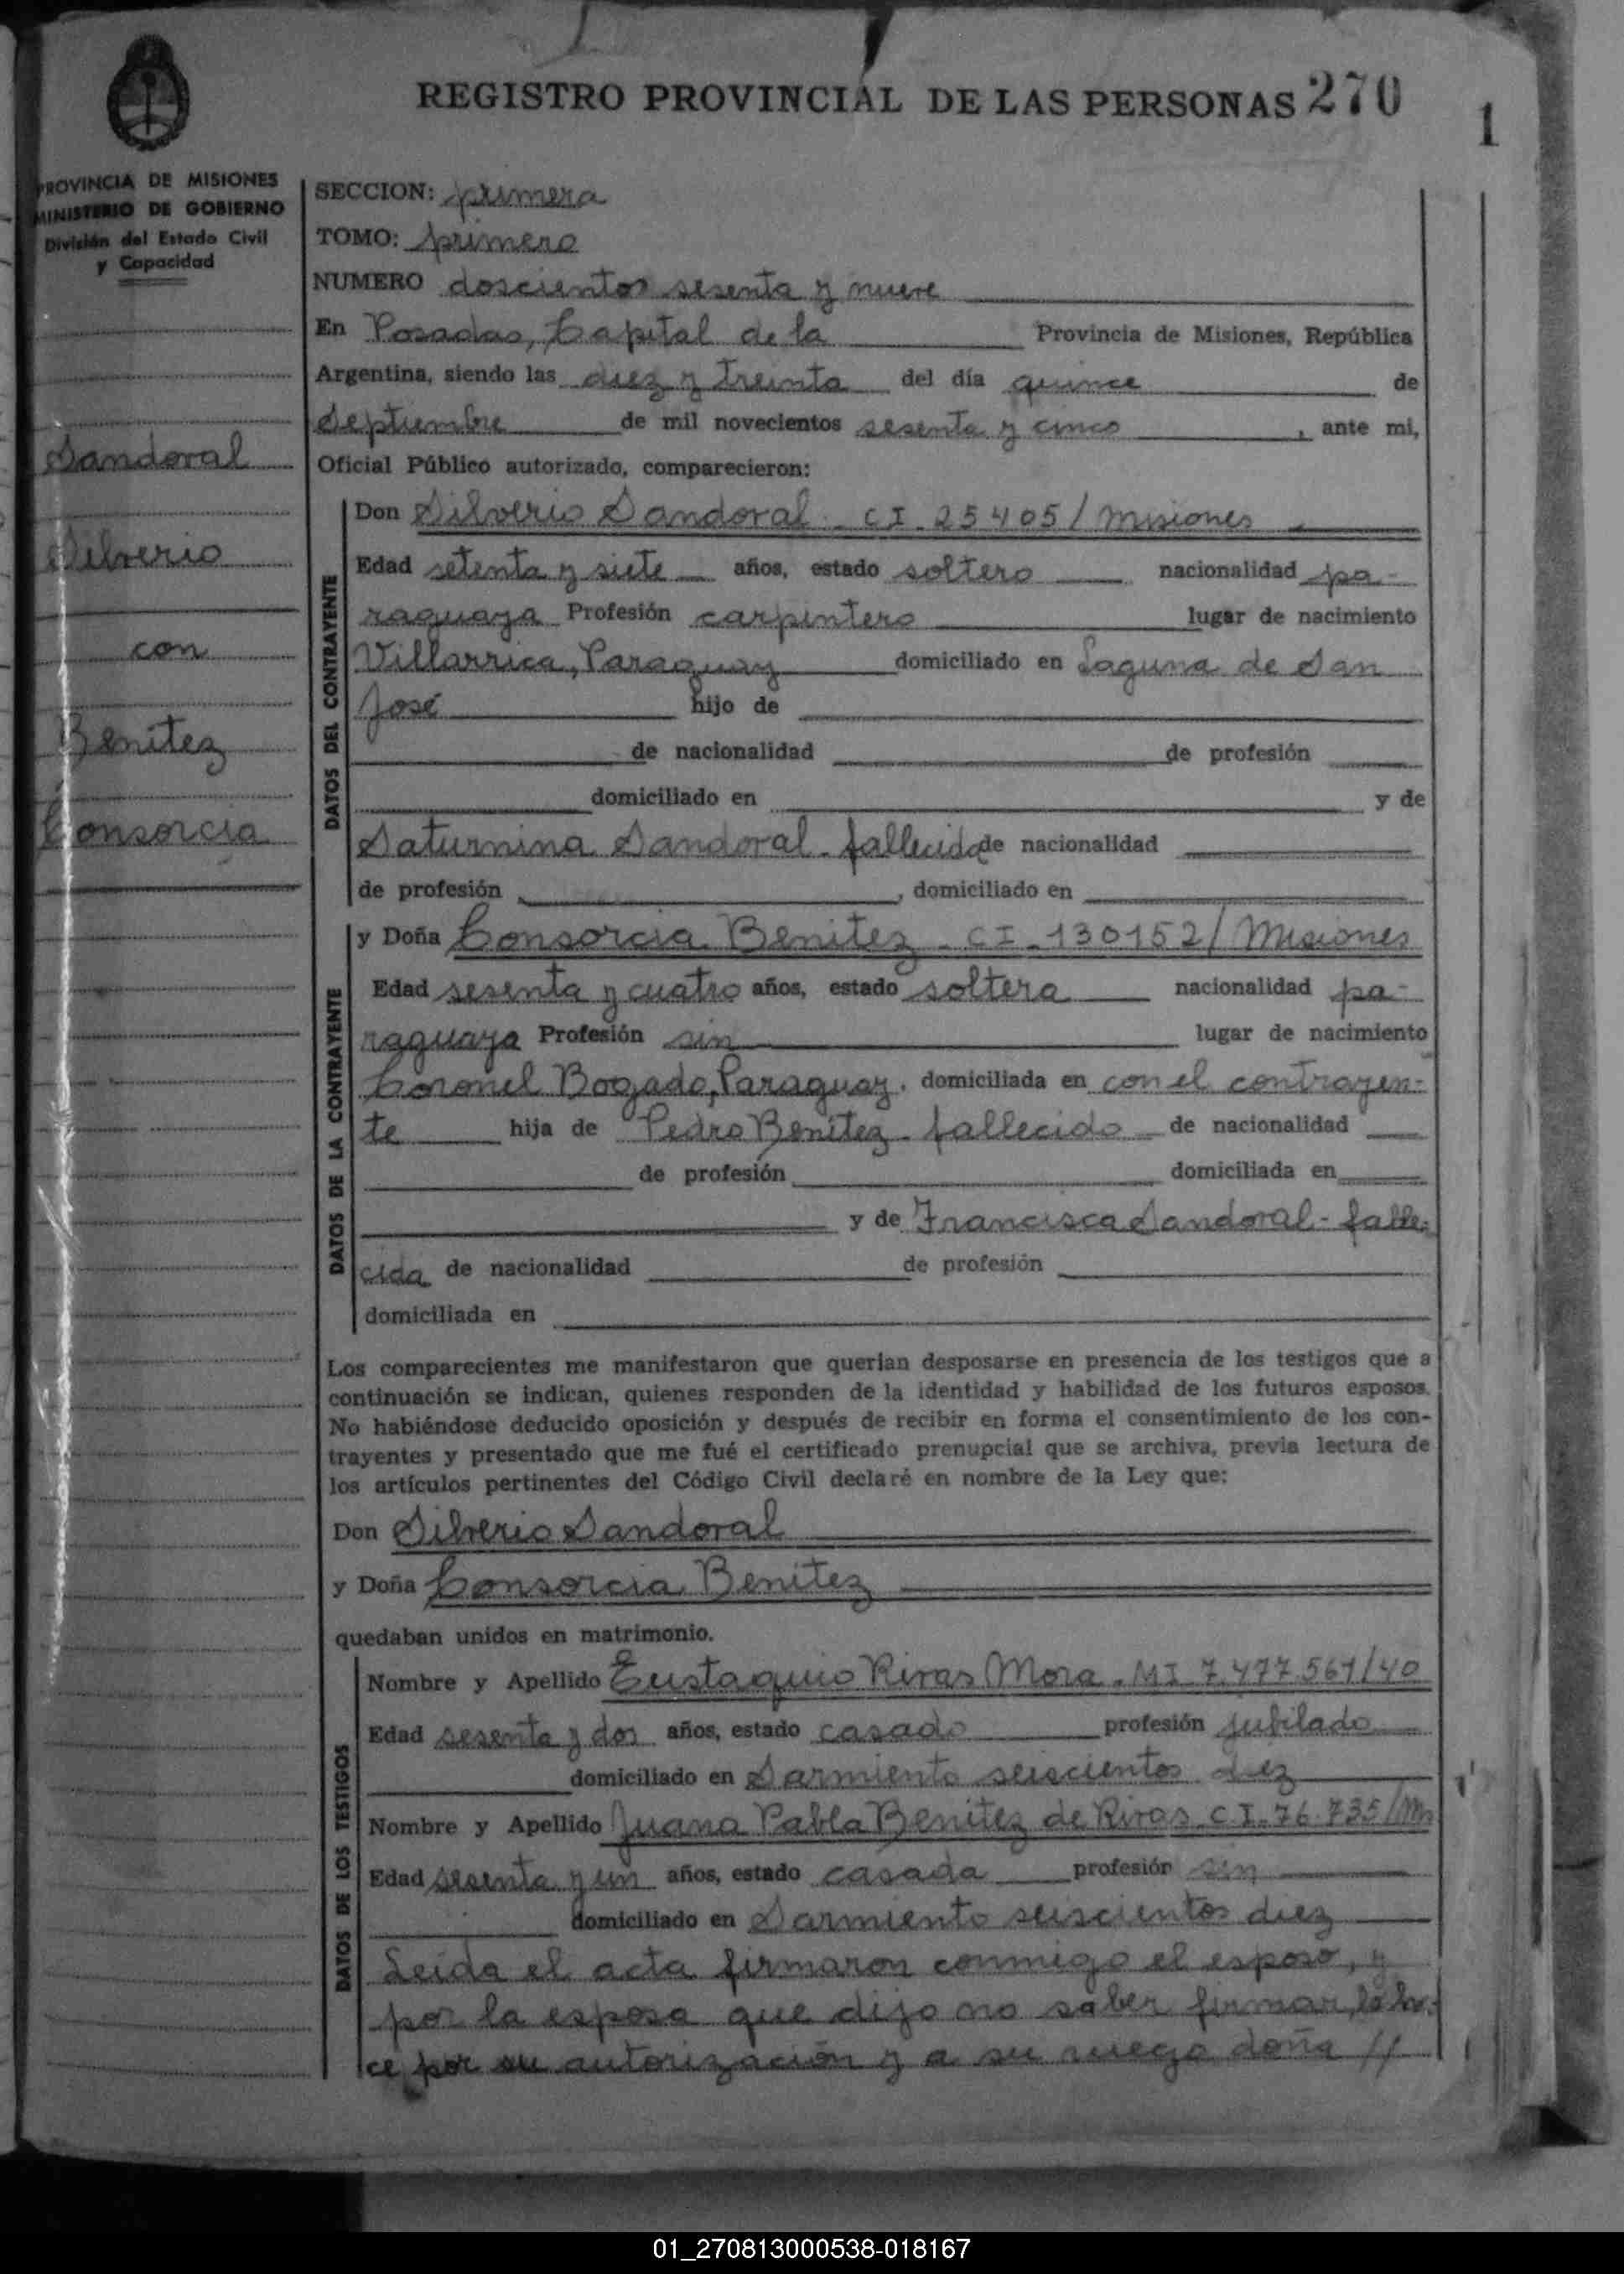 REGISTRO PROVINCIAL DE LAS PERSONAS 270
1
PROVINCIA DE MISIONES
MINISTERIO DE GOBIERNO
División del Estado Civil
y Capacidad
Sandoval
Silverio
con
Benítez
Consorcia
SECCION: primera
TOMO: primero
NUMERO doscientos sesenta y nueve
En Posadas, Capital de la Provincia de Misiones, República
Argentina, siendo las diez y treinta del día quince de
Septiembre de mil novecientos sesenta y cinco, ante mi,
Oficial Público autorizado, comparecieron:
DATOS DEL CONTRAYENTE
Don Silverio Sandoval - CI - 25405/Misiones
Edad setenta y siete años, estado soltero nacionalidad pa-
raguaya Profesión carpintero lugar de nacimiento
Villarrica, Paraguay domiciliado en Laguna de San
José hijo de
de nacionalidad de profesión
domiciliado en y de
Saturnina Sandoval - fallecida de nacionalidad
de profesión , domiciliado en
DATOS DE LA CONTRAYENTE
y Doña Consorcia Benítez - CI - 130152/Misiones
Edad sesenta y cuatro años, estado soltera nacionalidad pa-
raguaya Profesión sin lugar de nacimiento
Coronel Bogado, Paraguay. domiciliada en con el contrayen-
te hija de Pedro Benítez - fallecido de nacionalidad
de profesión domiciliada en
y de Francisca Sandoval - falle-
cida de nacionalidad de profesión
domiciliada en
Los comparecientes me manifestaron que querían desposarse en presencia de los testigos que a
continuación se indican, quienes responden de la identidad y habilidad de los futuros esposos.
No habiéndose deducido oposición y después de recibir en forma el consentimiento de los con-
trayentes y presentado que me fué el certificado prenupcial que se archiva, previa lectura de
los artículos pertinentes del Código Civil declaré en nombre de la Ley que:
Don Silverio Sandoval
y Doña Consorcia Benítez
quedaban unidos en matrimonio.
DATOS DE LOS TESTIGOS
Nombre y Apellido Eustaquio Rivas Mora - MI 7.477.561/40
Edad sesenta y dos años, estado casado profesión jubilado
domiciliado en Sarmiento seiscientos diez
Nombre y Apellido Juana Pabla Benítez de Rivas C.I. 76.735/Ms
Edad sesenta y un años, estado casada profesión sin
domiciliado en Sarmiento seiscientos diez
Leída el acta firmaron conmigo el esposo, y
por la esposa que dijo no saber firmar, lo hi-
ce por su autorización y a su ruego doña //
01_270813000538-018167